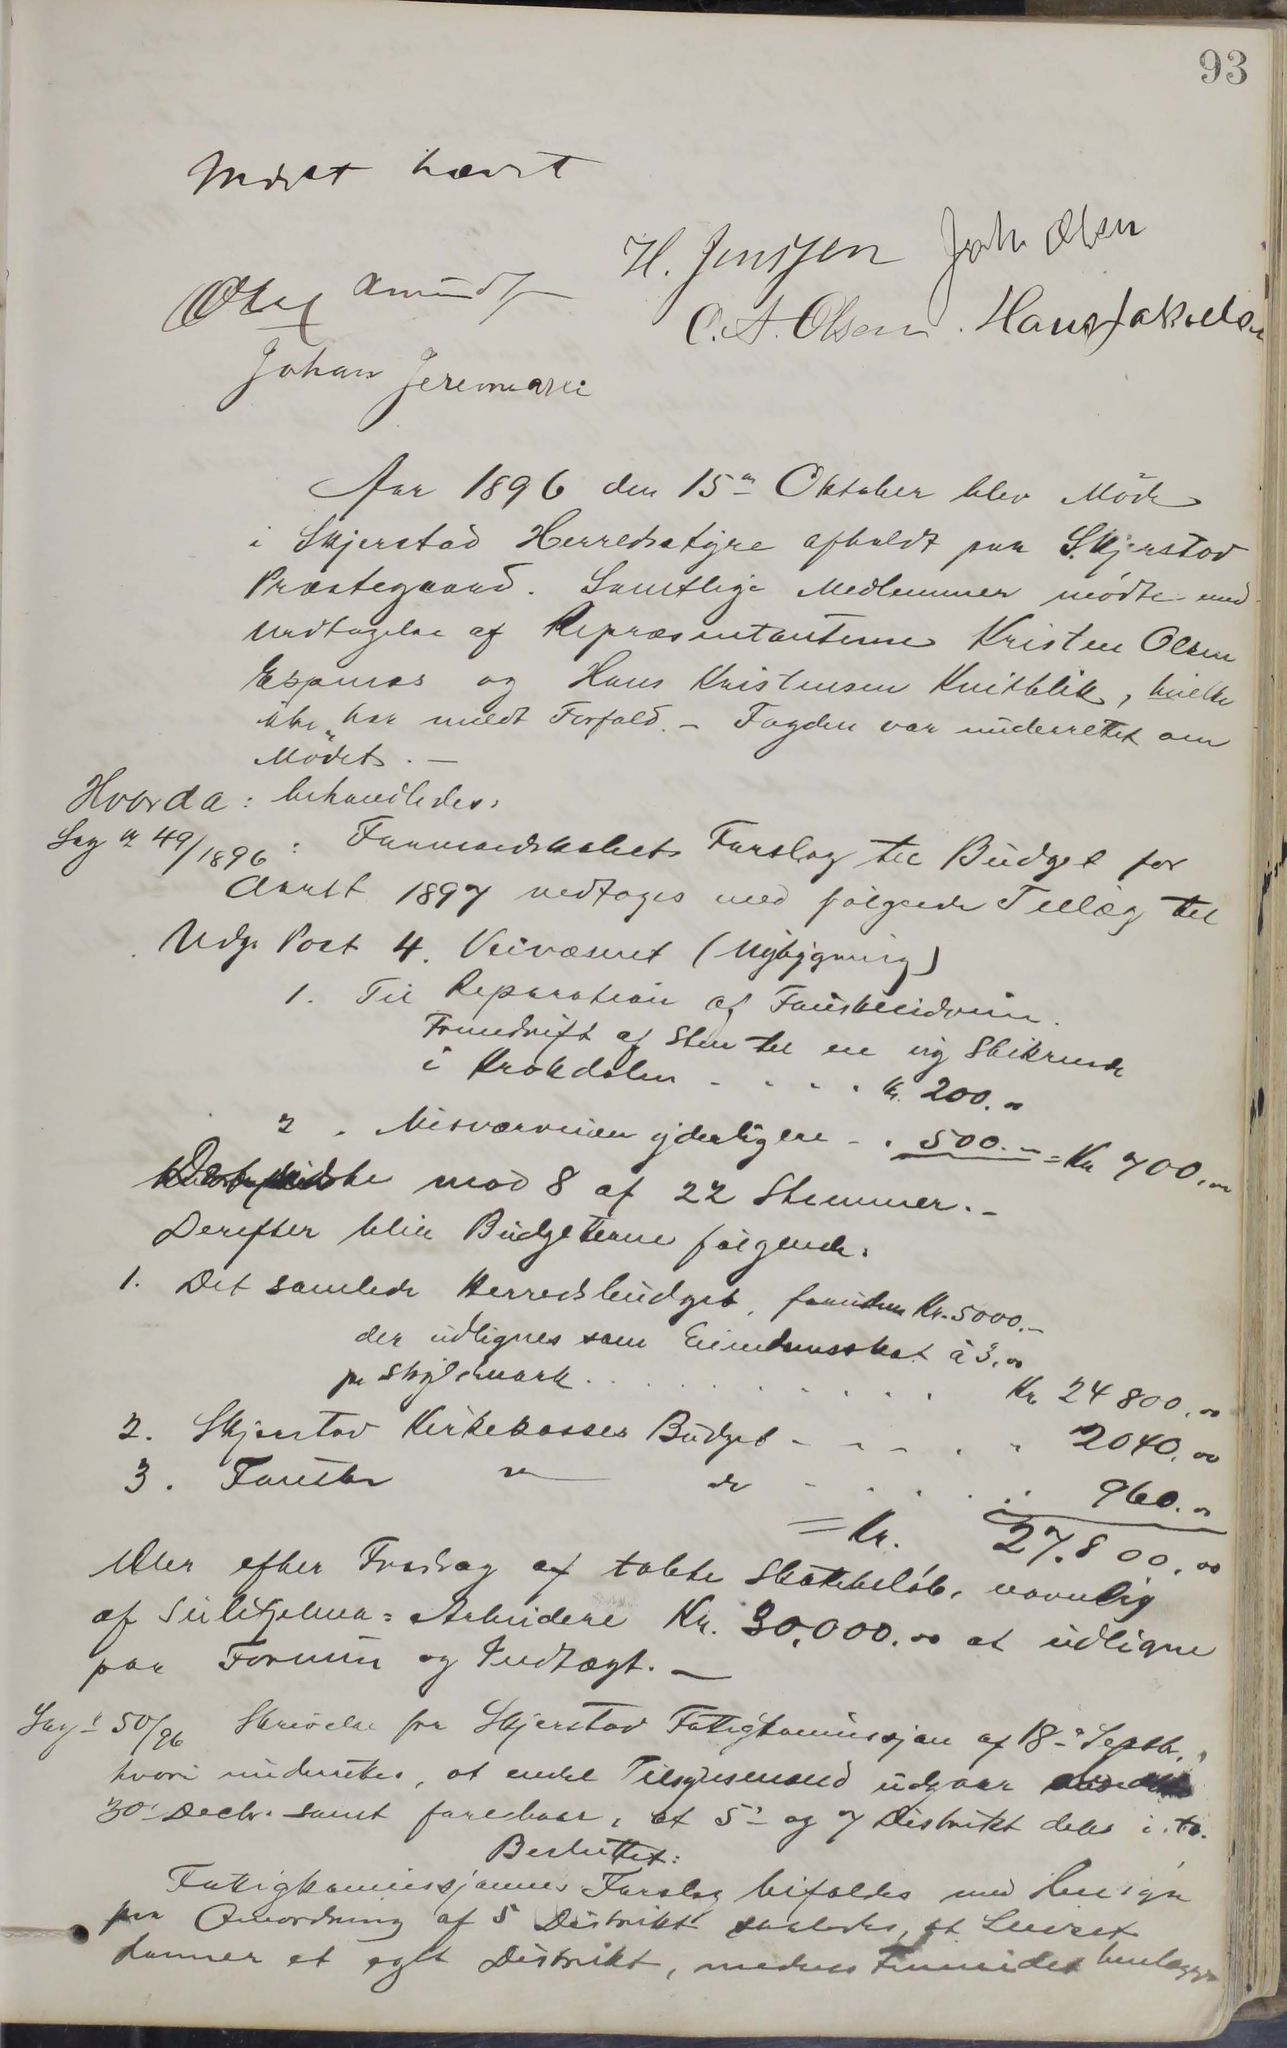 93
Mødet hævet
H. Jenssen Joh. Olsen
Olaf Amundsen
C. A. Olsen. Hans Jakobsen
Johan Jeremiasse
Aar 1896 den 15de Oktober blev Møde
i Skjerstad Herredsstyre afholdt paa Skjerstad
Præstegaard. Samtlige Medlemmer mødte med
Undtagelse af Repræsentanterne Kristen Olsen
Espenes og Hans Kristensen Kvitblik, hvilke
ikke har meldt Forfald. - Fogden var underrettet om
Mødet. -
Hvorda: behandledes:
Sag nr 49/1896: Formandskabets Forslag til Budget for
Aaret 1897 vedtoges med følgende Tillæg til
Udg. Post 4. Veivæsenet (Nybygning)
1. Til Reparation af Fauskeeidveien.
Fremdrift af Sten til en ny Stikrende
i Krokdalen - . . . kr. 200.00
2. Misværveien yderligere - . 500.- = Kr 700,00
mod 8 af 22 Stemmer. -
Derefter blir Budgetterne følgende:
1. Det samlede Herredsbudget, foruden Kr. 5000.-
der udlignes som Eiendomsskat à 3,00
pr Skyldmark . . . . . . . . Kr 24 800,00
2. Skjerstad Kirkekasses Budget - - - . . 2040,00
3. Fauske " do - . . . . 960.00
= Kr. 27.800,00
Eller efter Fradrag af tabte Skattebeløb, navnlig
af Sulitjelma=Arbeidere Kr. 30,000.00 at udligne
paa Formue og Indtægt. -
Sag nr 50/96 Skrivelse fra Skjerstad Fattigkommissjon af 18de Septbr.,
hvori underrettes, at endel Tilsynsmænd udgaar
30' Decbr. samt foreslaar, at 5' og 7 Distrikt deles i to.
Besluttet:
Fattigkommissjonens Forslag bifaldes med Hensyn
paa Omordning af 5 Distrikt saaledes, at Leivset
danner et eget Distrikt, medens Finneidet henlægges